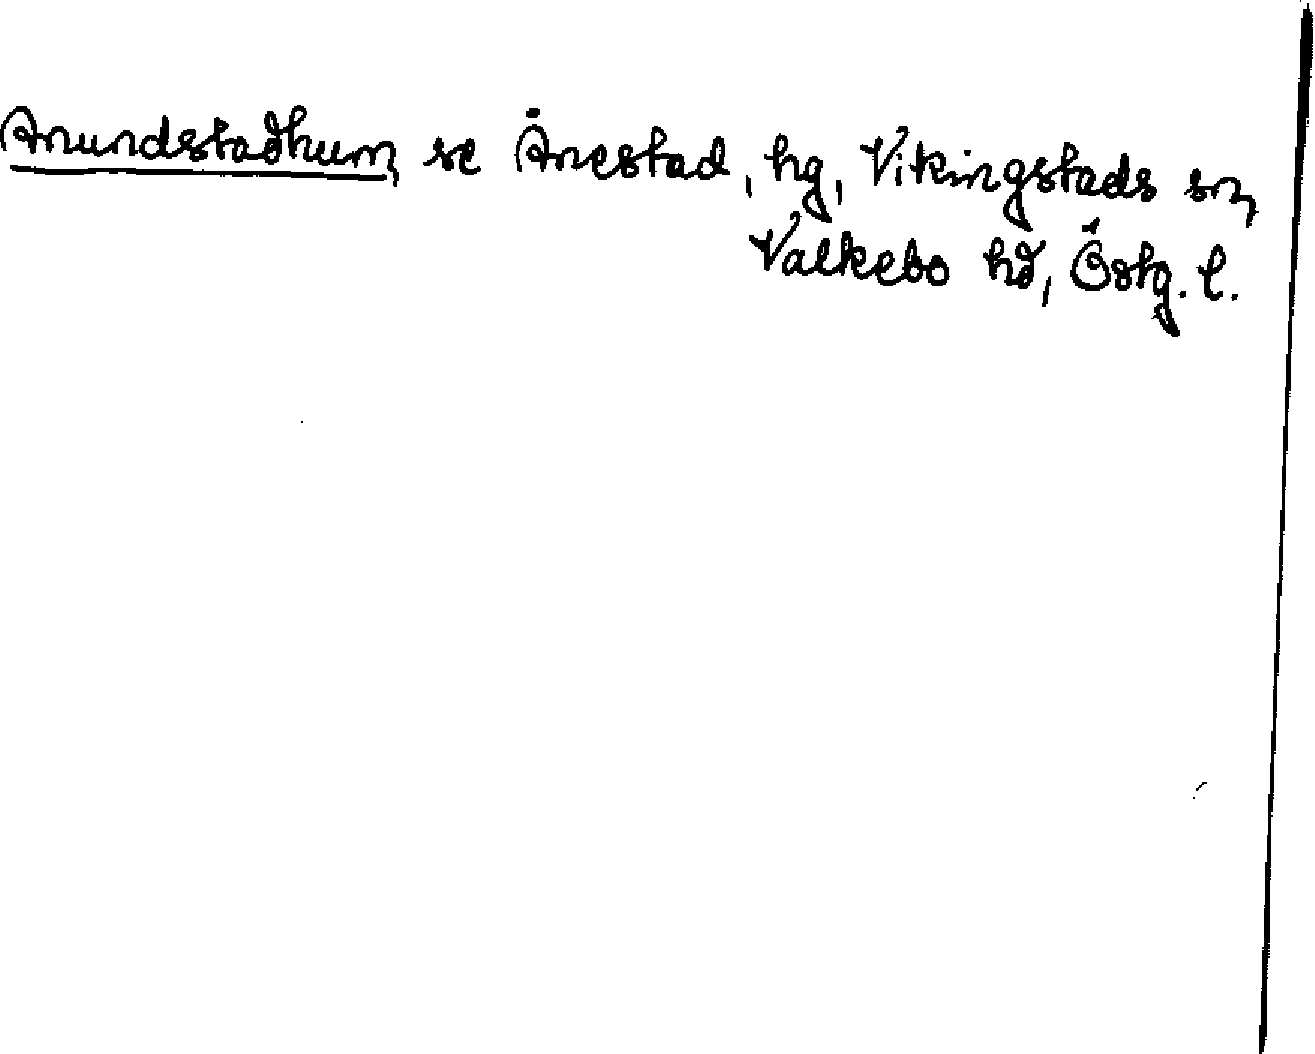 Anundstadhum, se Ånestad, hg, Vikingstads sn,
Valkebo hd, Östg. l.